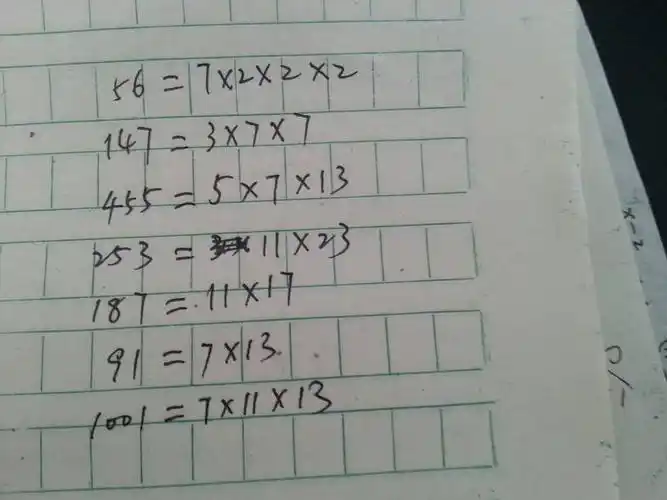 56 = 7×2×2×2
147 = 3×7×7
455 = 5×7×13
253 = 11×23
187 = 11×17
91 = 7×13
1001 = 7×11×13
x-2